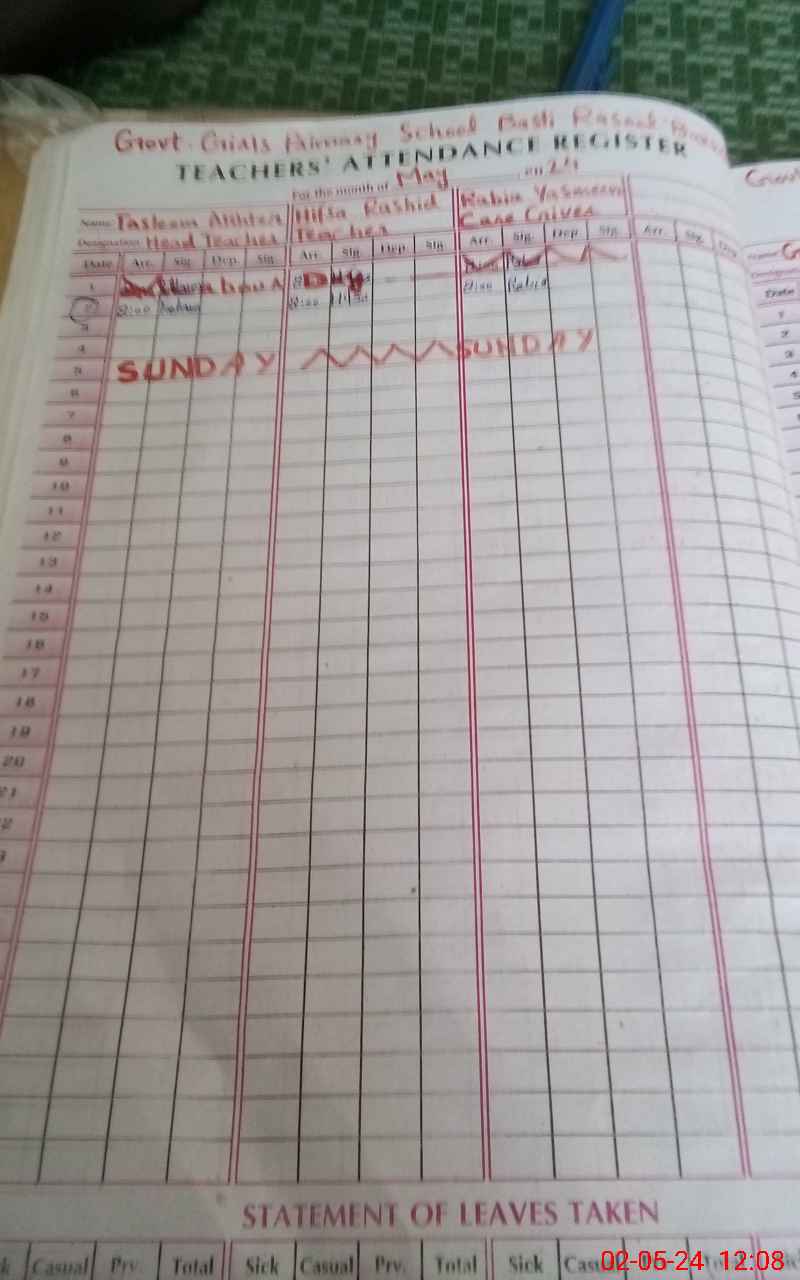 Govt. Girls Primary School Basti Rasool
TEACHERS' ATTENDANCE REGISTER
For the month of May 24
Name Tasleem Akhter Hifsa Rashid Rabia Yasmeen
Designation Head Teacher Teacher Care Gives
Date Arr. Sig. Dep. Sig. Arr. Sig. Dep. Sig. Arr. Sig. Dep. Sig. Arr. Sig. Dep
1
2 8:00 8:00 8:00 Rabia
3
4
5 SUNDAY SUNDAY
6
7
8
9
10
11
12
13
14
15
16
17
18
19
20
21
STATEMENT OF LEAVES TAKEN
Casual Prv. Total Sick Casual Prv. Total Sick Casual
02-05-24 12:08
Date
1
2
3
4
5